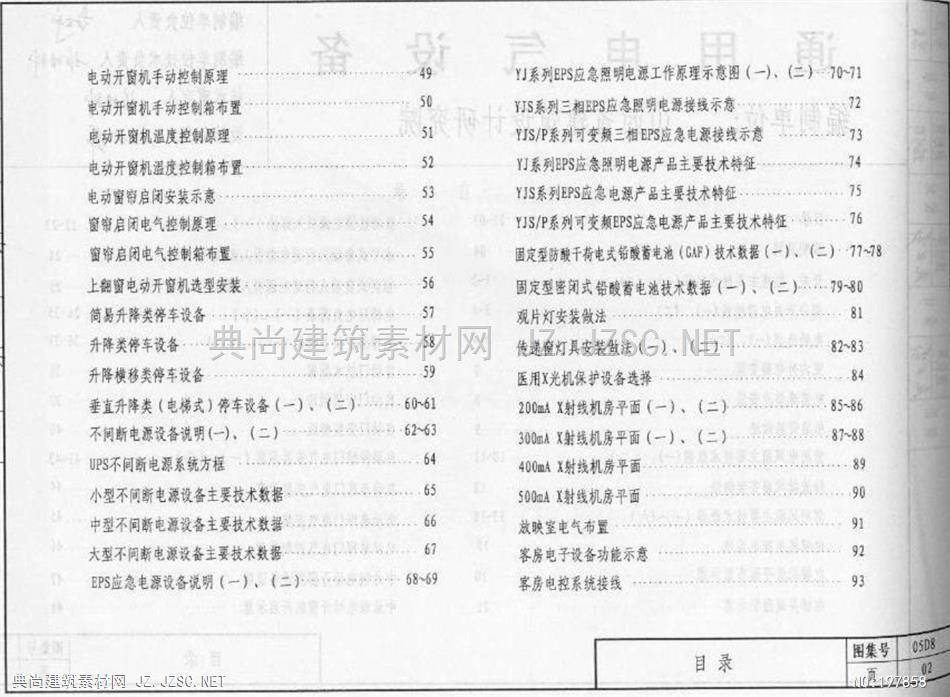 电动开窗机手动控制原理 49
电动开窗机手动控制箱布置 50
电动开窗机温度控制原理 51
电动开窗机温度控制箱布置 52
电动窗帘启闭安装示意 53
窗帘启闭电气控制原理 54
窗帘启闭电气控制箱布置 55
上翻窗电动开窗机选型安装 56
简易升降类停车设备 57
升降类停车设备 58
升降横移类停车设备 59
垂直升降类(电梯式)停车设备(一)、(二) 60~61
不间断电源设备说明(一)、(二) 62~63
UPS不间断电源系统方框 64
小型不间断电源设备主要技术数据 65
中型不间断电源设备主要技术数据 66
大型不间断电源设备主要技术数据 67
EPS应急电源设备说明(一)、(二) 68~69
YJ系列EPS应急照明电源工作原理示意图(一)、(二) 70~71
YJS系列三相EPS应急照明电源接线示意 72
YJS/P系列可变频三相EPS应急电源接线示意 73
YJ系列EPS应急照明电源产品主要技术特征 74
YJS系列EPS应急电源产品主要技术特征 75
YJS/P系列可变频EPS应急电源产品主要技术特征 76
固定型防酸干荷电式铅酸蓄电池(GAF)技术数据(一)、(二) 77~78
固定型密闭式铅酸蓄电池技术数据(一)、(二) 79~80
观片灯安装做法 81
传递窗灯具安装做法(一)、(二) 82~83
医用X光机保护设备选择 84
200mA X射线机房平面(一)、(二) 85~86
300mA X射线机房平面(一)、(二) 87~88
400mA X射线机房平面 89
500mA X射线机房平面 90
放映室电气布置 91
客房电子设备功能示意 92
客房电控系统接线 93
典尚建筑素材网 JZ.JZSC.NET
目录
图集号 05D8
页 02
典尚建筑素材网 JZ.JZSC.NET
NO:197858